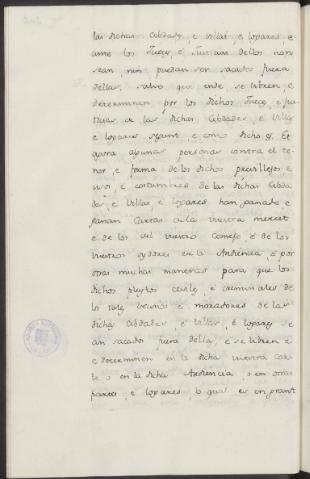 las dichas Cibdades, e villas, e logares, e
ante los Jueces, e Justicias dellos non
sean, nin puedan ser sacados fuera
dellas, salvo que ende, se libren, e
determinen, por los dichos Jueces, e Jus
ticias de las dichas Cibdades, e Villas
e logares segunt, e como dicho es, Et
agora algunas personas contra el te
nor, e forma de los dichos previllejos e
usos, e costumbres de las dichas Cibda
des, e Villas e logares han ganado e
ganan Cartas de la vuestra merced
e de los del vuestro Consejo, e de los
vuestros oydores en la Audiencia, e por
otras muchas maneras para que los
dichos pleytos ceviles, e creminales de
los tales vecinos e moradores de las
dichas Cibdades, e villas, e logares se
an sacados fuera dellas, e se libren e
e determinen en la dicha vuestra Cor
te, o en la dicha Audiencia, o en otras
partes, e logares, lo qual es en grant